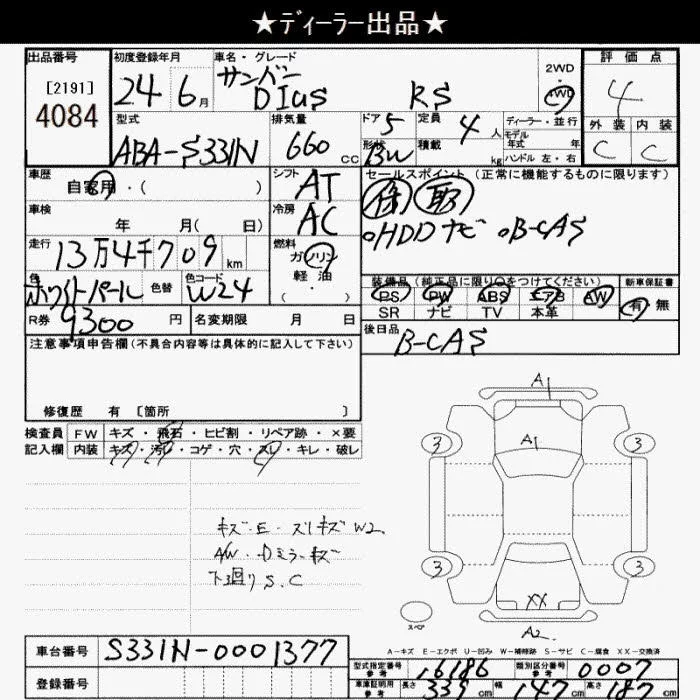 ★ディーラー出品★
出品番号
[2191]
4084
初度登録年月
24 6月
車名・グレード
サンバー
DIas RS
2WD
4WD
評価点
4
外装 内装
C C
型式
ABA-S331N
排気量
660 cc
ドア 5
形状 BW
定員 4人
積載 kg
ディーラー・並行
モデル年式 年
ハンドル 左・右
車歴
自家用・( )
シフト
AT
セールスポイント (正常に機能するものに限ります)
保 取
。HDDナビ 。B-CAS
車検
年 月( 日)
冷房
AC
走行
13万4千709km
燃料
ガソリン
軽油
( ・ )
色
ホワイトパール
色替
色コード
W24
装備品 (純正品に限り○をつけてください)
PS PW ABS エアB AW
SR ナビ TV 本革
新車保証書
有 無
R券 9300 円
名変期限 月 日
後日品
B-CAS
注意事項申告欄(不具合内容等は具体的に記入して下さい)
修復歴 有 [箇所 ]
検査員
記入欄
FW キズ・飛石・ヒビ割・リペア跡・×要
内装 キズ・汚レ・コゲ・穴・スレ・キレ・破レ
キズ・E・スリキズ W2
A/W・Dミラーキズ
下廻りS.C
A1
A1
3 3
3 3
XX
A2
スペア
A-キズ E-エクボ U-凹み W-補修跡 S-サビ C-腐食 XX-交換済
車台番号
S331N-0001377
登録番号
型式指定番号
参考
16186
類別区分番号
参考
0007
車庫証明用
参考
長さ 339cm 幅 147cm 高さ 187cm